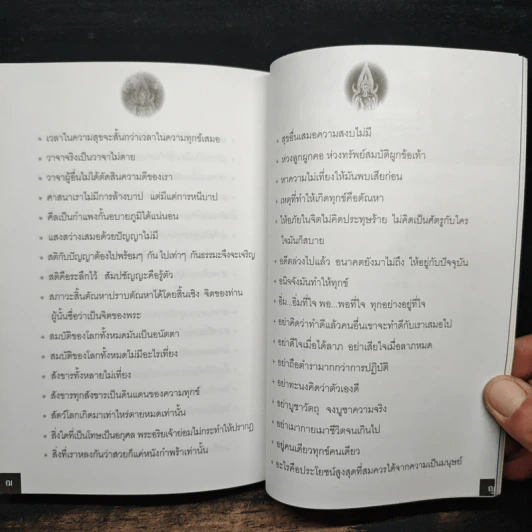 เวลาในความสุขจะสั้นกว่าเวลาในความทุกข์เสมอ
วาจาจริงเป็นวาจาไม่ตาย
วาจาผู้อื่นไม่ได้ตัดสินความดีของเรา
ศาสนาเราไม่มีการล้างบาป แต่มีแต่การหนีบาป
ศีลเป็นกำแพงกั้นอบายภูมิได้แน่นอน
แสงสว่างเสมอด้วยปัญญาไม่มี
สติกับปัญญาต้องไปพร้อมๆ กัน ไปเท่าๆ กันธรรมะจึงจะเจริญ
สติคือระลึกไว้ สัมปชัญญะคือรู้ตัว
สภาวะสิ้นตัณหาปราบตัณหาได้โดยสิ้นเชิง จิตของท่าน
ผู้นั้นชื่อว่าเป็นจิตของพระ
สมบัติของโลกทั้งหมดมันเป็นอนัตตา
สมบัติของโลกทั้งหมดไม่มีอะไรเที่ยง
สังขารทั้งหลายไม่เที่ยง
สังขารทุกสังขารเป็นดินแดนของความทุกข์
สัตว์โลกเกิดมาเท่าไหร่ตายหมดเท่านั้น
สิ่งใดที่เป็นโทษเป็นอกุศล พระอริยเจ้าย่อมไม่กระทำให้ปรากฏ
สิ่งที่เราหลงกันว่าสวยก็แค่หนังกำพร้าเท่านั้น
ฌ
สุขอื่นเสมอความสงบไม่มี
ห่วงลูกผูกคอ ห่วงทรัพย์สมบัติผูกข้อเท้า
หาความไม่เที่ยงให้มันพบเสียก่อน
เหตุที่ทำให้เกิดทุกข์คือตัณหา
ให้อภัยในจิตไม่คิดประทุษร้าย ไม่คิดเป็นศัตรูกับใคร
ใจมันก็สบาย
อดีตล่วงไปแล้ว อนาคตยังมาไม่ถึง ให้อยู่กับปัจจุบัน
อนิจจังมันทำให้ทุกข์
อิ่ม...อิ่มที่ใจ พอ...พอที่ใจ ทุกอย่างอยู่ที่ใจ
อย่าคิดว่าทำดีแล้วคนอื่นเขาจะทำดีกับเราเสมอไป
อย่าดีใจเมื่อได้ลาภ อย่าเสียใจเมื่อลาภหมด
อย่าถือตำรามากกว่าการปฏิบัติ
อย่าทะนงคิดว่าตัวเองดี
อย่าบูชาวัตถุ จงบูชาความจริง
อย่าเมากายเมาชีวิตจนเกินไป
อยู่คนเดียวทุกข์คนเดียว
อะไรคือประโยชน์สูงสุดที่สมควรได้จากความเป็นมนุษย์
ญ